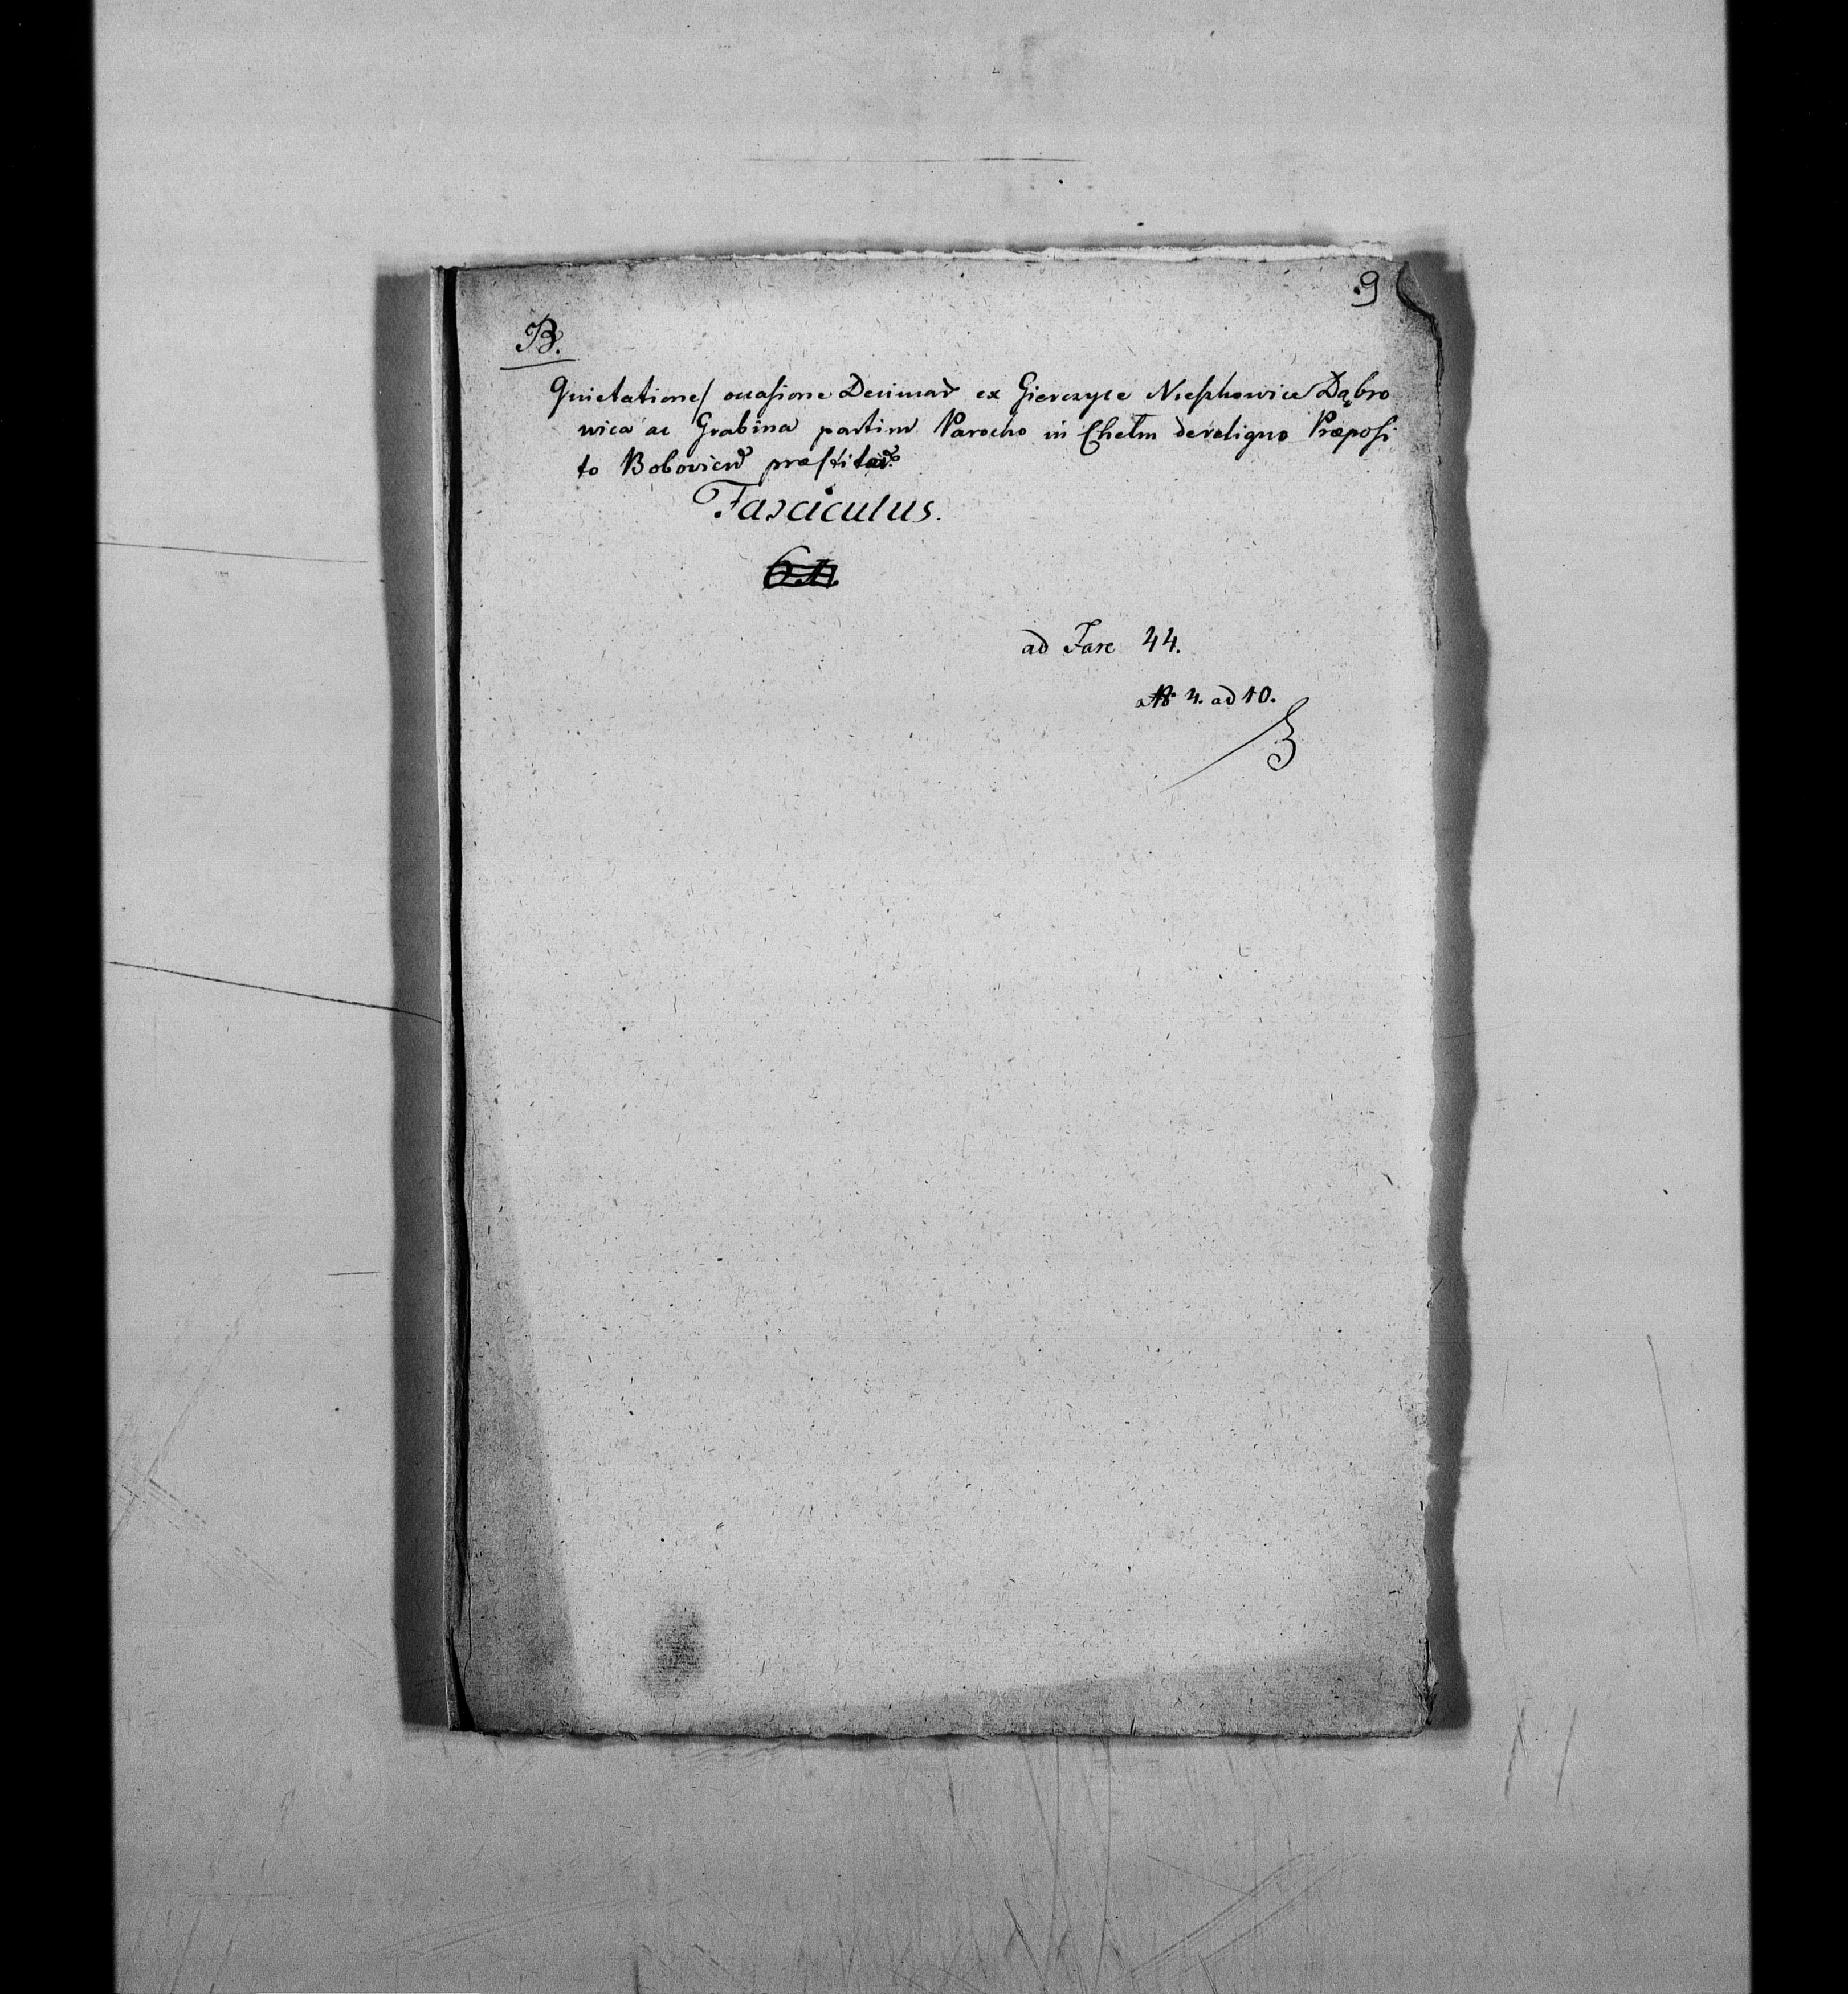 9
B.
Quietationes occasione Decimar ex Gierczyce Nieszkowice Dąbro
wica ac Grabina partim Parocho in Chełm de reliquo Præposi
to Boboviens præstitar
Fasciculus.
ad Fasc 44.
a No 4. ad 10.